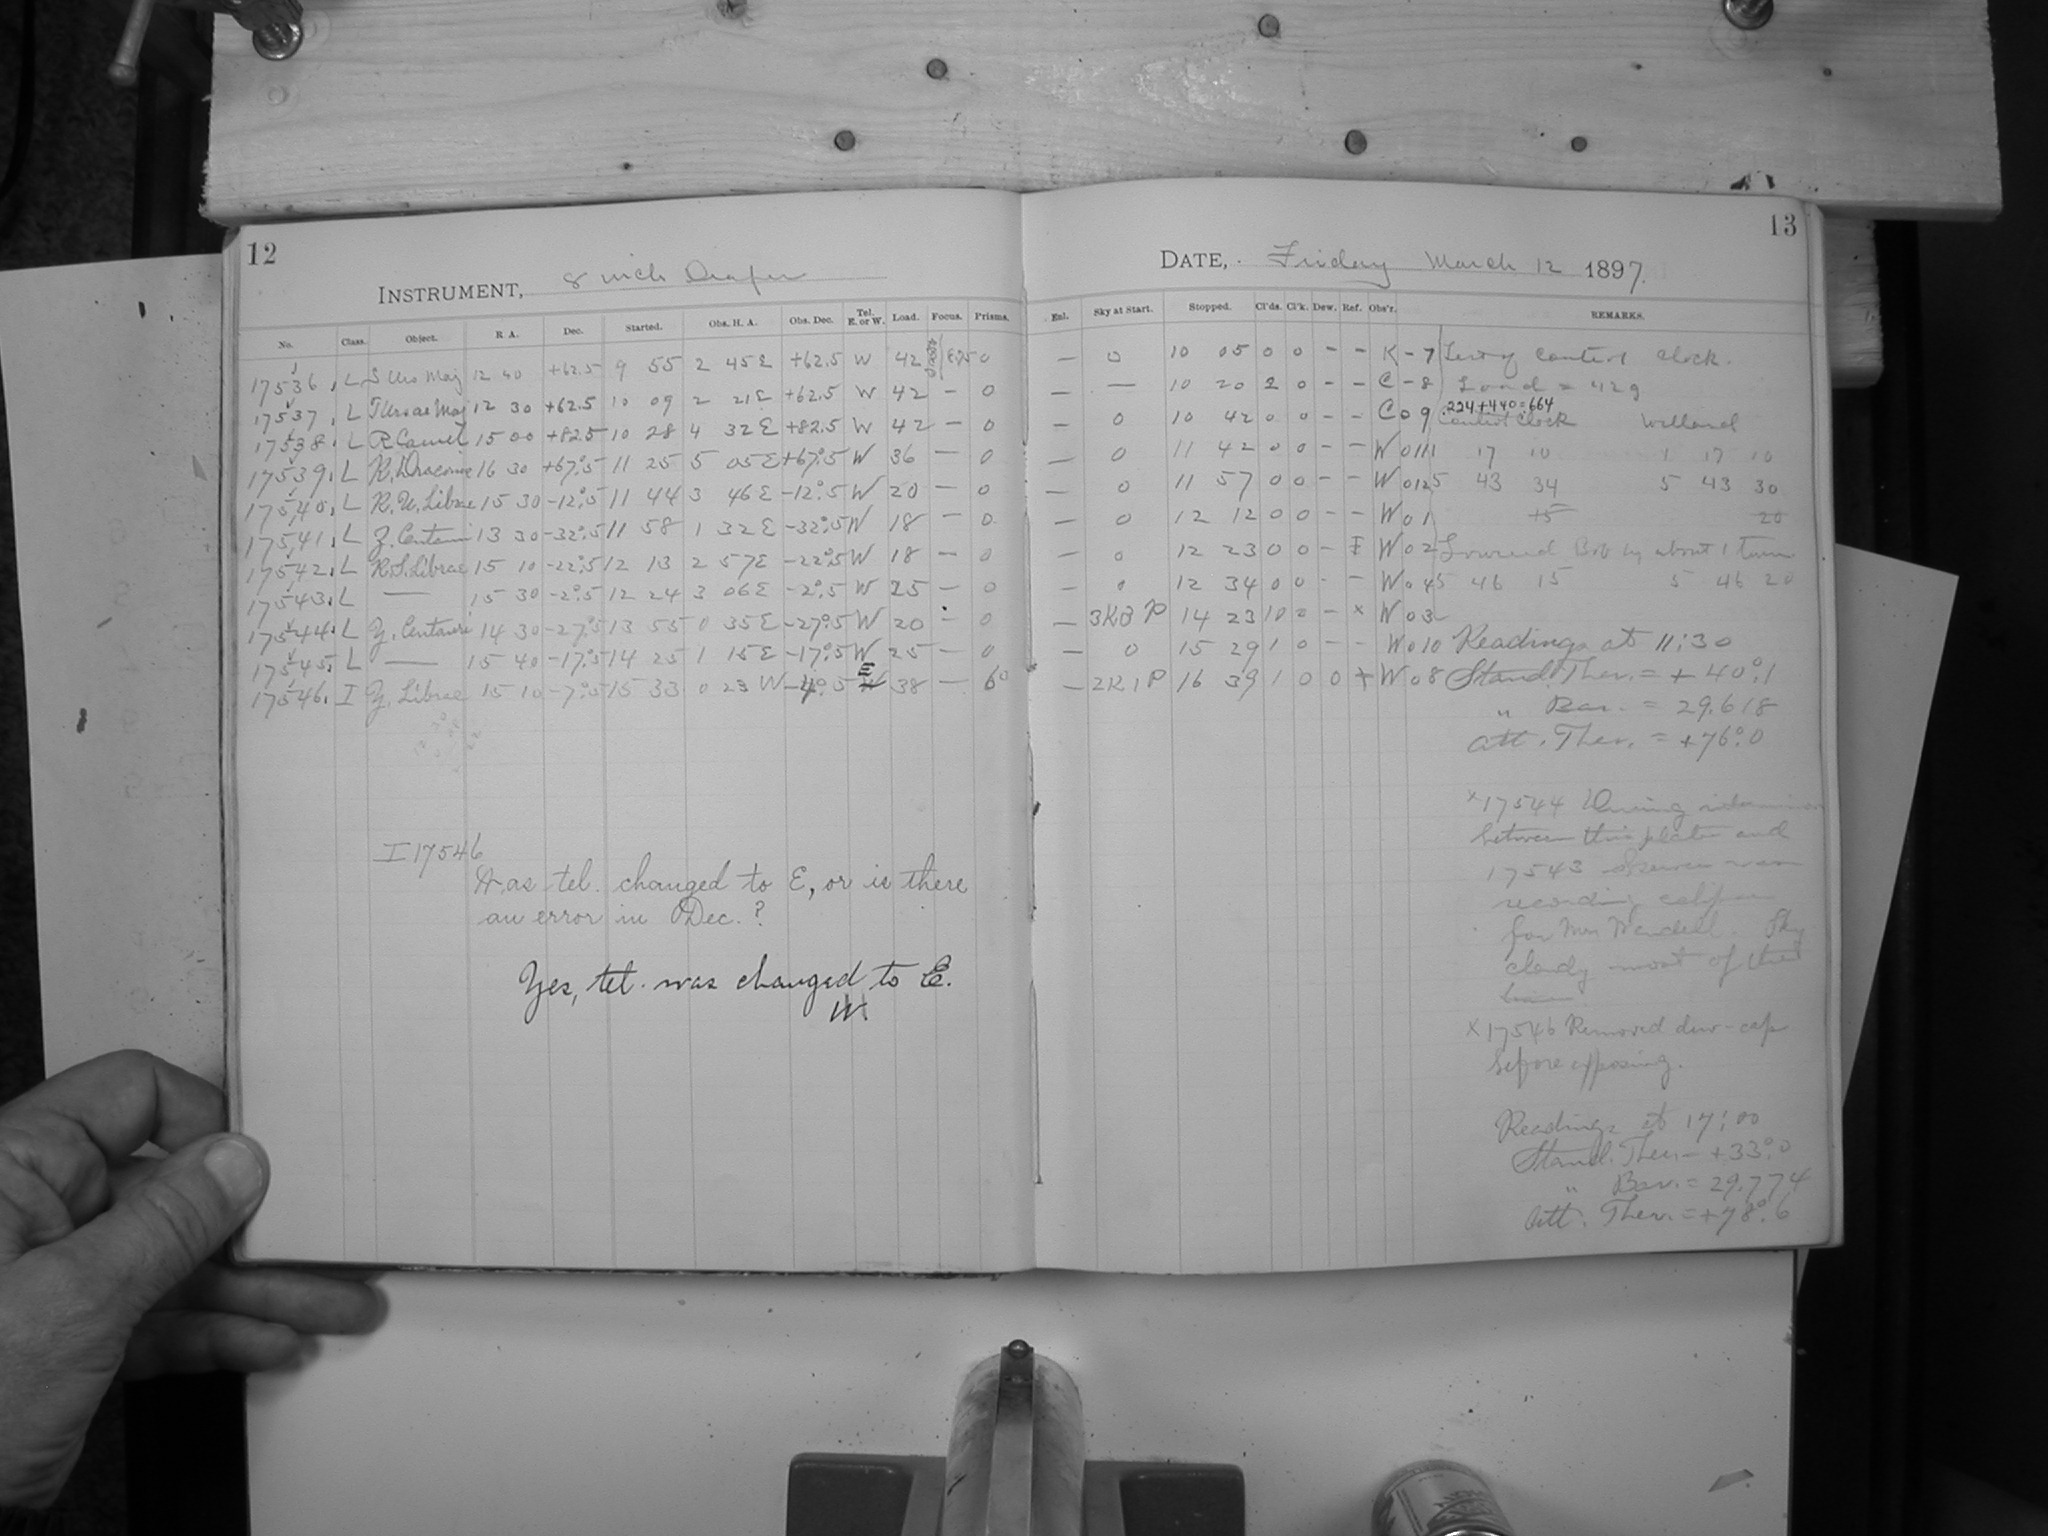 12
INSTRUMENT, 8 inch Draper
No. Class. Object. R A. Dec. Started. Obs. H. A. Obs. Dec. Tel. E. or W. Load. Focus. Prisms.
17536. L S Urs Maj 12 40 +62.5 9 55 2 45E +62.5 W 42 0
17537. L T Ursae Maj 12 30 +62.5 10 09 2 21E +62.5 W 42 – 0
17538. L R Camel 15 00 +82.5 10 28 4 32E +82.5 W 42 – 0
17539. L R. Draconis 16 30 +67°.5 11 25 5 05E +67°.5 W 36 – 0
17540. L R. U. Librae 15 30 –12°.5 11 44 3 46E –12°.5 W 20 – 0
17541. L Z. Centauri 13 30 –32°.5 11 58 1 32E –32°.5 W 18 – 0
17542. L R.S. Librae 15 10 –22°.5 12 13 2 57E –22°.5 W 18 – 0
17543. L — 15 30 –2°.5 12 24 3 06E –2°.5 W 25 – 0
17544. L Y. Centauri 14 30 –27°.5 13 55 0 35E –27°.5 W 20 – 0
17545. L — 15 40 –17°.5 14 25 1 15E –17°.5 W 25 – 0
17546. I Y. Librae 15 10 –7°.5 15 33 0 23 W –4°.5 W E 38 – 6°
I 17546
Was tel. changed to E, or is there
an error in Dec.?
Yes, tel. was changed to E.
W.
13
DATE, Friday March 12 1897.
Enl. Sky at Start. Stopped. Cl'ds. Cl'k. Dew. Ref. Obs'r. REMARKS.
— 0 10 05 0 0 – – K – 7 control clock.
— — 10 20 2 0 – – C – 8 Load = 42g
224+440=664
— 0 10 42 0 0 – – C 0 9 Control Clock Willard
— 0 11 42 0 0 – – W 0 11 1 17 10 1 17 10
— 0 11 57 0 0 – – W 0 12 5 43 34 5 43 30
— 0 12 12 0 0 – – W 0 1 15 20
— 0 12 23 0 0 – W 0 2 Lowered Bob by about 1 turn
— 0 12 34 0 0 – – W 0 4 5 46 15 5 46 20
— 3K3 P 14 23 10 0 – x W 0 3
— 0 15 29 1 0 – – W 0 10 Readings at 11:30
— 2K1P 16 39 1 0 0 + W 0 8 Stand. Ther. = + 40°.1
" Bar. = 29.618
Att. Ther. = +76°.0
x 17544 During
between this plate and
17543 was
recording
for Mr Wendell. Sky
cloudy most of the
x 17546 Removed dew-cap
before exposing.
Readings at 17:00
Stand. Ther. – +33°.0
" Bar. = 29.774
Att. Ther. = +78°.6